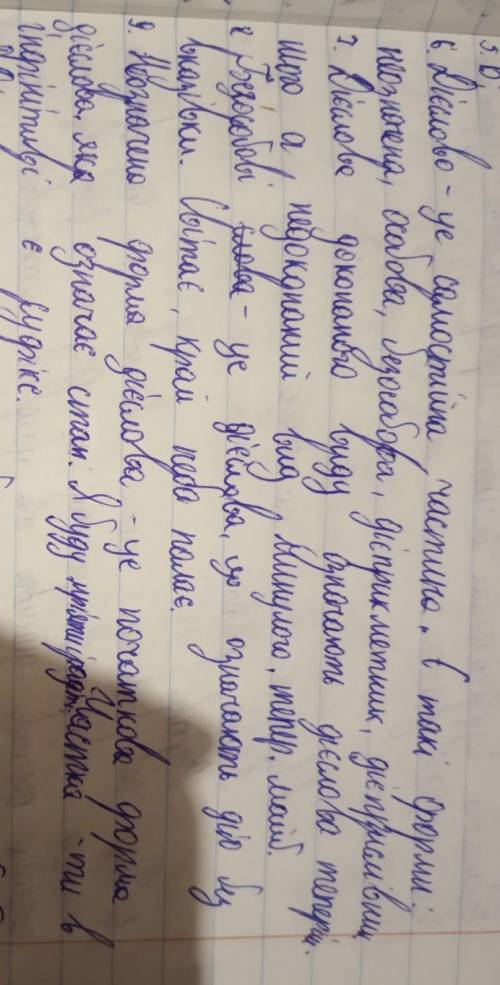 5. В
6. Дієслово - це самостійна частина. Є такі форми:
неозначена, особова, безособова, дієприкметник, дієприслівник
7. Дієслова доконаного виду означають дієслова теперіш.
що а недоконаний вид Минулого, тепер. майб.
8 Безособові слова - це дієслова, що означають дію без
вказівки. Світає, край неба палає.
9. Неозначена форма дієслова - це початкова форма
дієслова, яка означає стан. Я буду Частка -ти в
інфінітиві є суфікс.